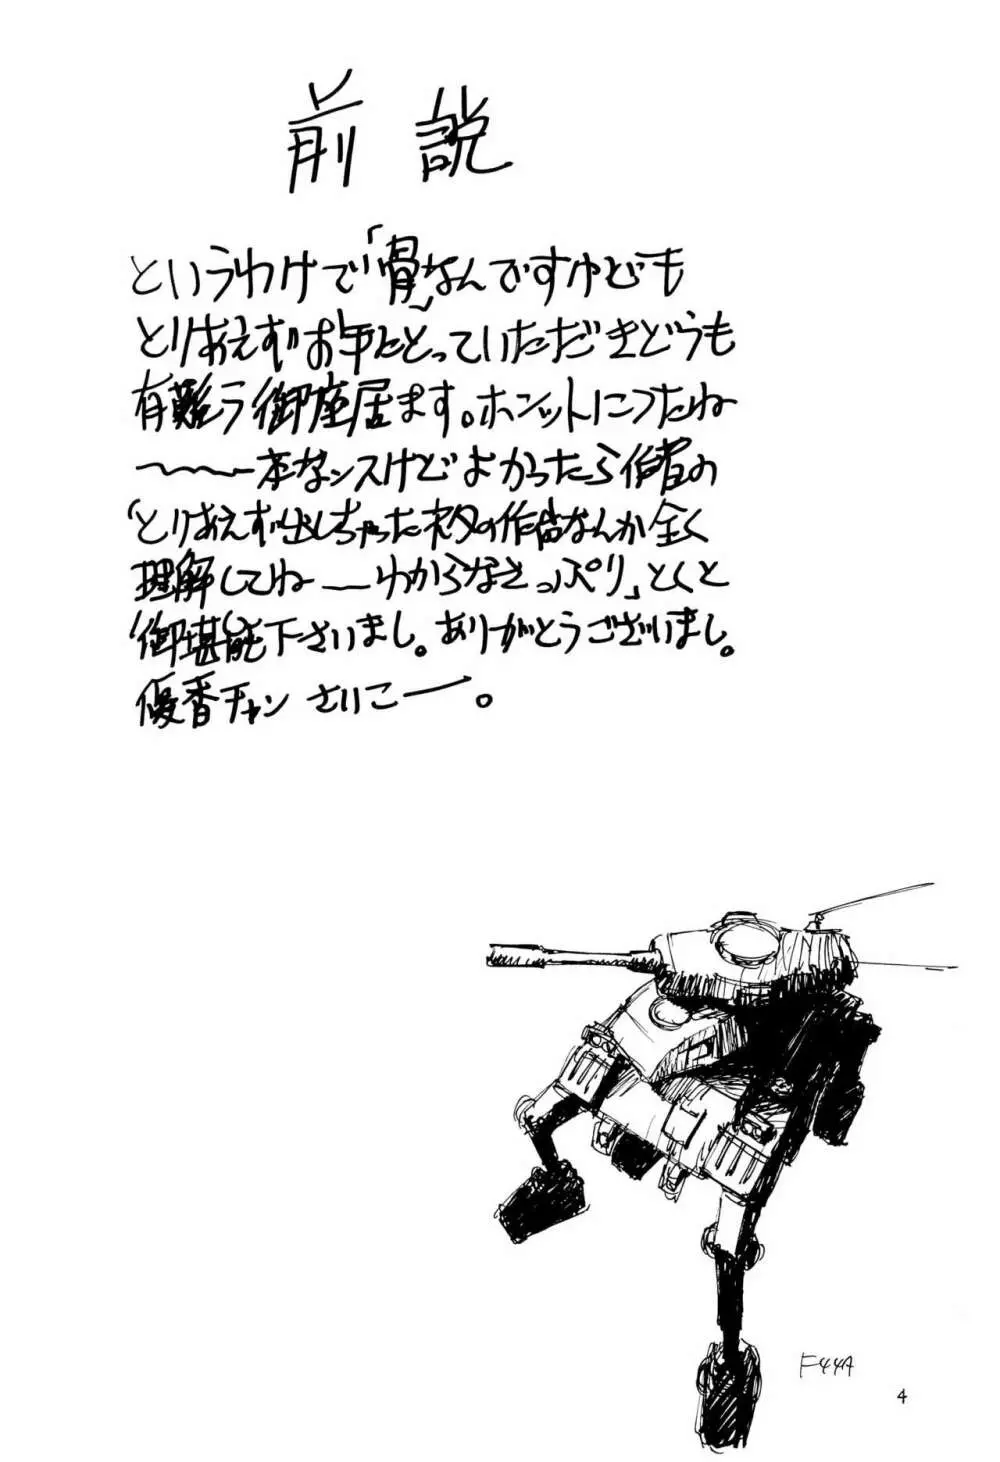 前説
というわけで「骨」なんですけども
とりあえずお手にとっていただきどうも
有難う御座居ます。ホンットにつたね
〜〜〜本なンスけどよかったら作者の
「とりあえず出しちゃったネタの作品なんか全く
理解してね──わからなさっぷり」とくと
御堪能下さいまし。ありがとうございまし。
優香チャン さいこー。
F44A
4